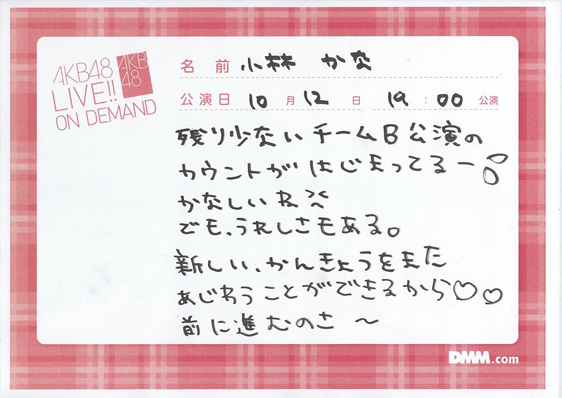 AKB48
LIVE!!
ON DEMAND
AKB
48
名前 小林 かな
公演日 10月 12日 19:00 公演
残り少ないチームB公演の
カウントがはじまってるー
かなしいね
でも、うれしさもある。
新しい、かんきょうをまた
あじわうことができるから♡♡
前に進むのさ〜
DMM.com